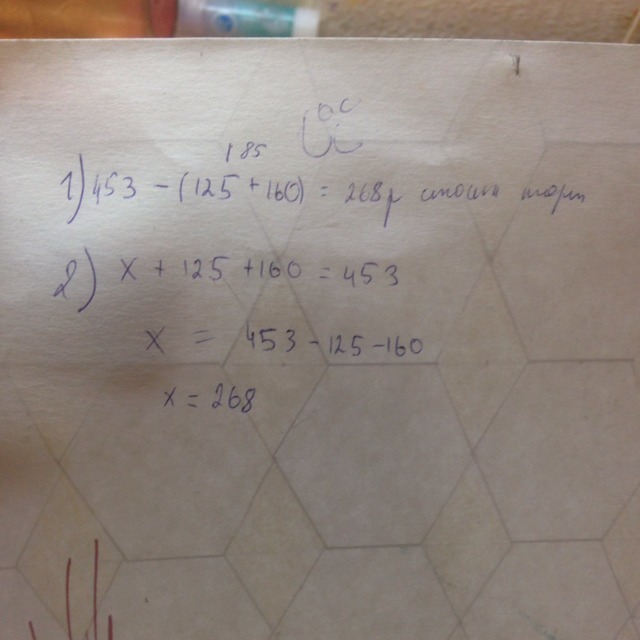 185
1) 453 - (125 + 160) = 268р стоит торт
2) x + 125 + 160 = 453
x = 453 - 125 - 160
x = 268